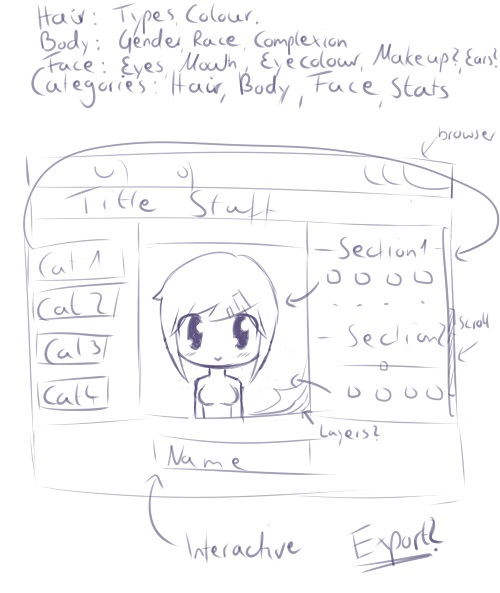 Hair: Types, Colour.
Body: Gender, Race, Complexion
Face: Eyes, Mouth, Eyecolour, Makeup?, Ears?
Categories: Hair, Body, Face, Stats
browser
Title Stuff
Cat 1
Cat 2
Cat 3
Cat 4
Section 1
Section 2
Scroll
Layers?
Name
Interactive
Export?